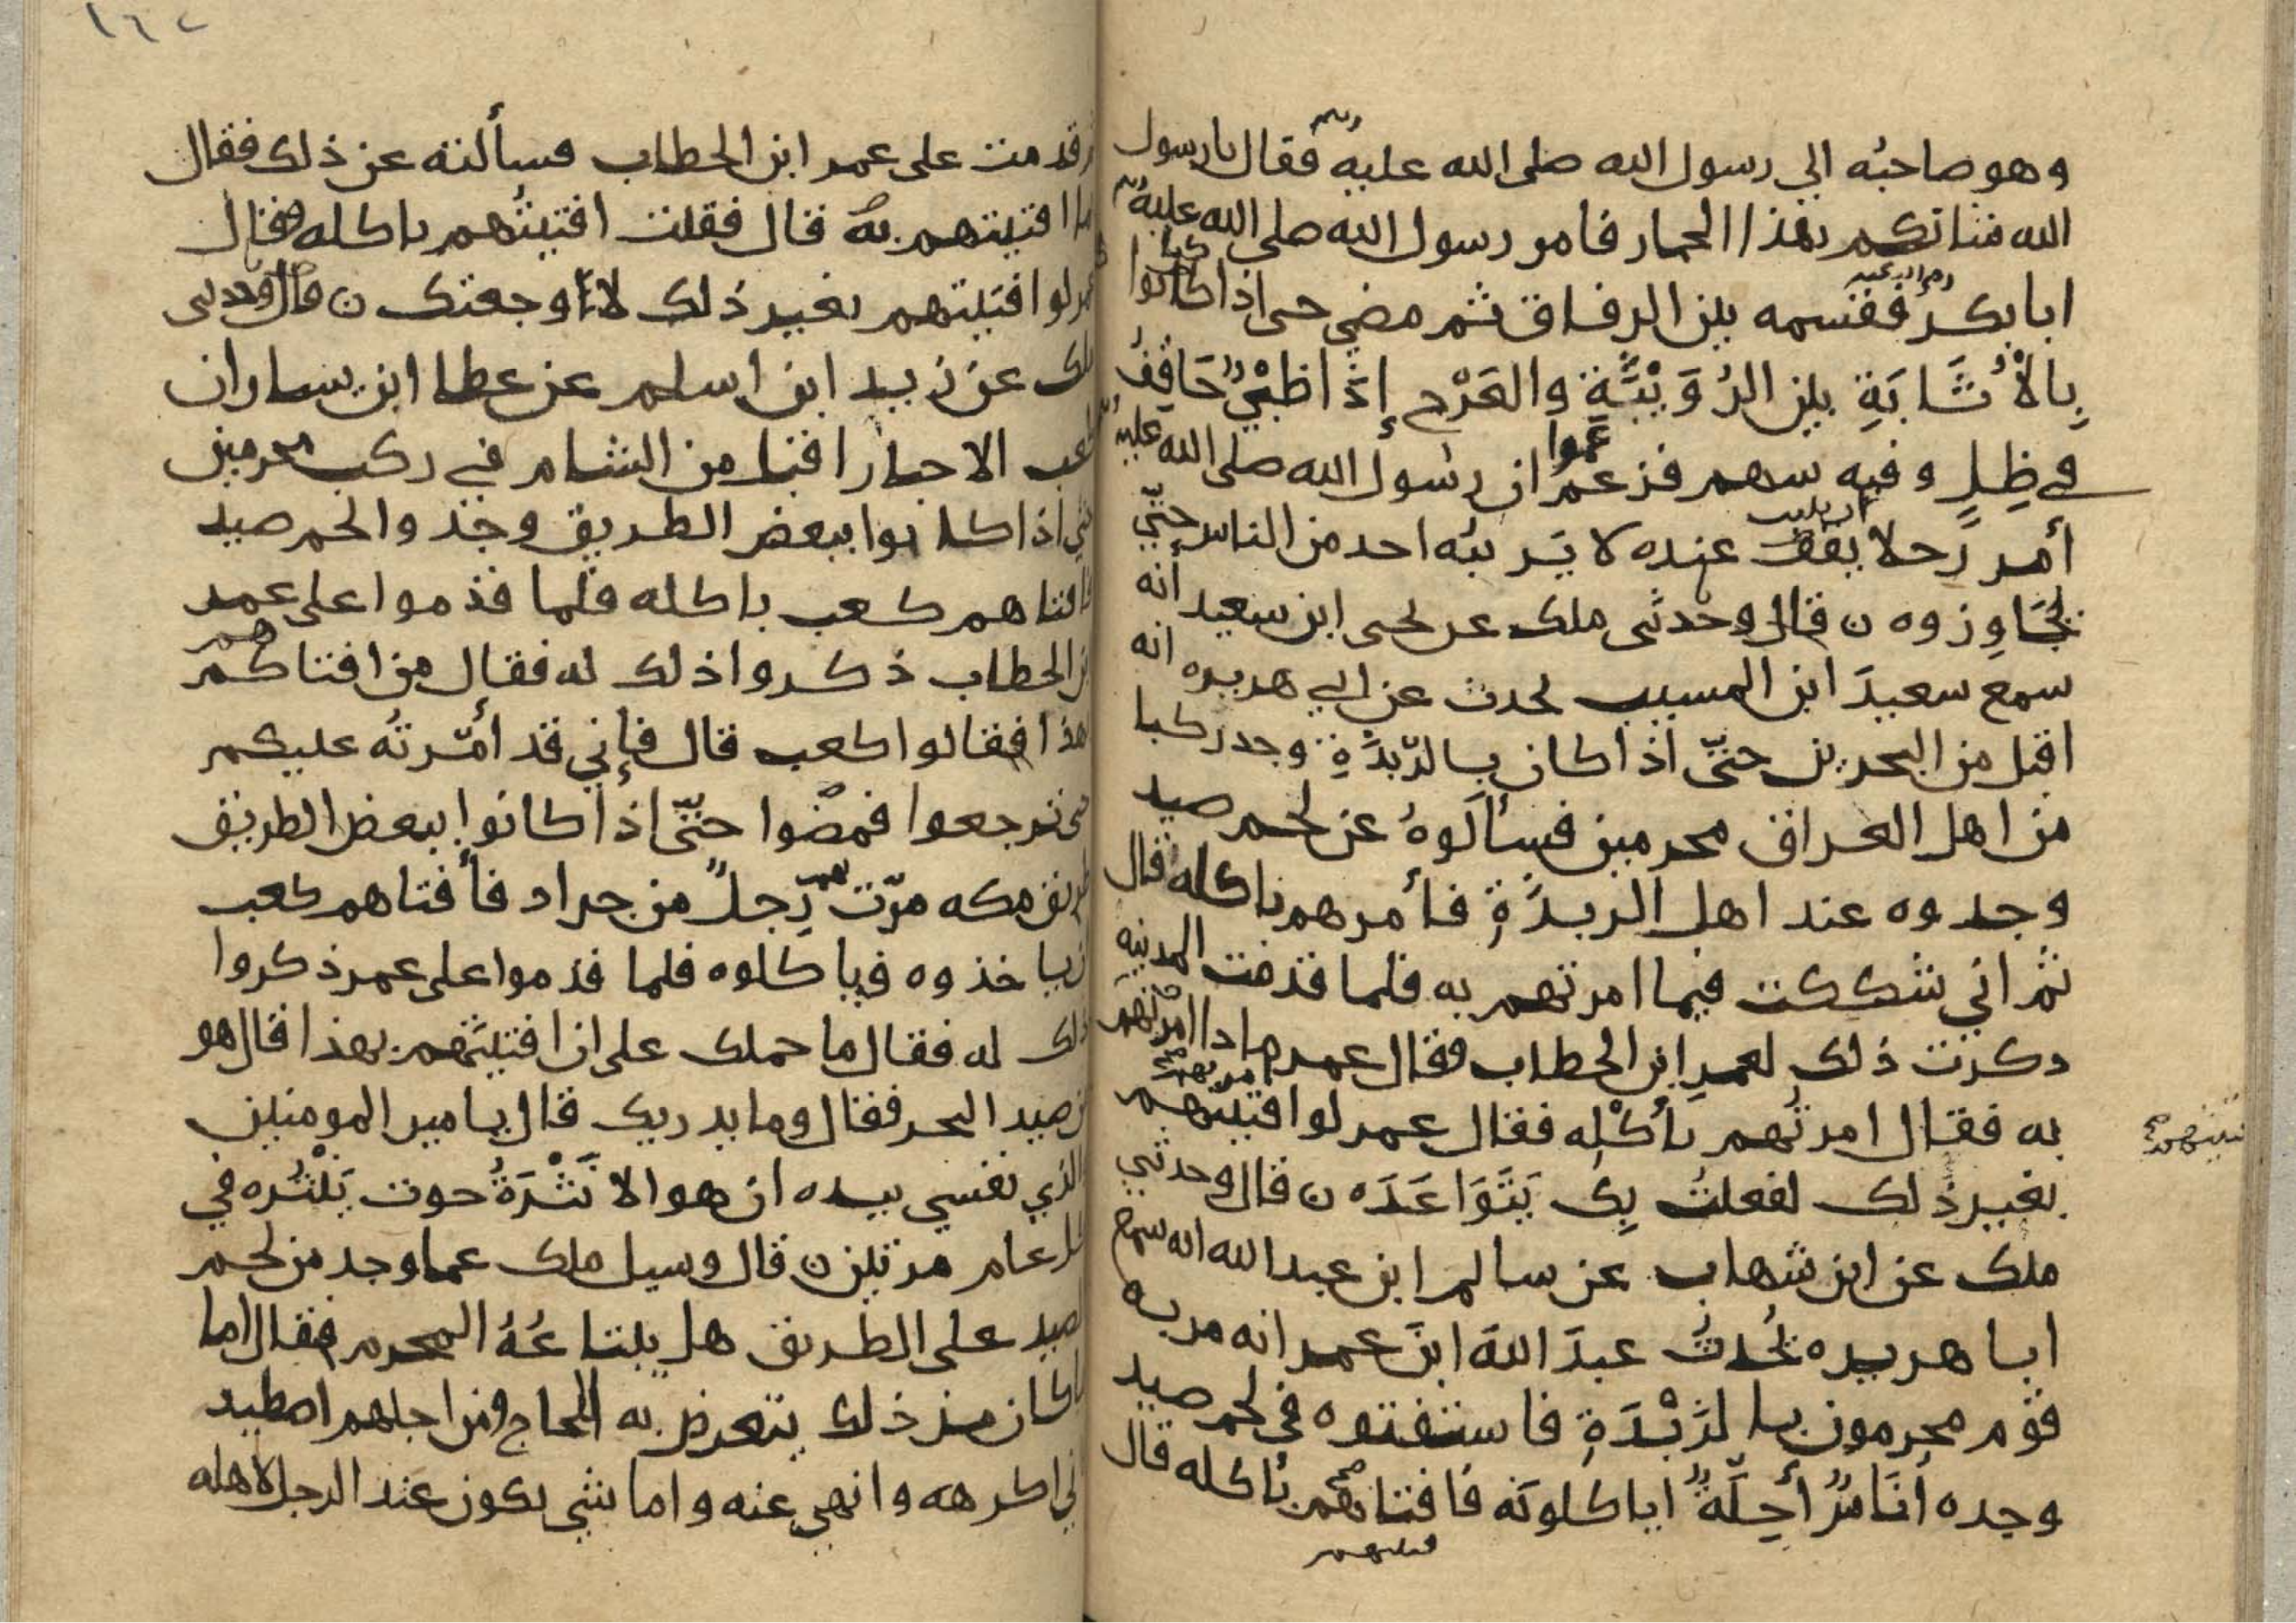 وهو صاحبه الي رسول الله صلى الله عليه وسلم فقال يا رسول
الله شانكم بهذا الحمار فامر رسول الله صلى الله عليه
ابا بكر رضي الله عنه فقسمه بين الرفاق ثم مضي حتى اذا كانوا
بِالْأُثَابَةِ بين الرُوَيْثَةِ والعَرْج إذَا ظبْيٌ حَاقِفٌ
في ظِلٍ وفيه سهم فزعموا ان رسول الله صلى الله عليه
أمر رَجلا يقف عنده لا يَريبُه احد من الناس حتّي
يُجَاوِزوه ن قال وحدثنى ملك عن يحيى ابن سعيد أنه
سمع سعيدَ ابن المسيب يحدث عن ابي هريره انه
اقبل من البحرين حتّي اذا كان بالرّبَذَةِ وجد ركبا
من اهل العراق محرمين فسأَلوهُ عن لحم صيد
وجدوه عند اهل الربذَةِ فأمرهم باكله قال
ثم اني شككت فيما امرتهم به فلما قدمت المدينه
ذكرت ذلك لعمرِ ابن الخطاب فقال عمر ماذا امرتهم
به فقال امرتُهم بأكْلِه فقال عمر لو افتيتهم
بغير ذلك لفعلتُ بِك يَتَوَاعَدَه ن قال وحدثني
ملك عن ابن شهاب عن سالم ابن عبد الله انه سمع
ابا هريره يُحدثُ عبدَ اللهَ ابنَ عمر انه مر به
قوم محرمون بالرَبْذَةِ فاستفتوه في لحم صيد
وجده أنَاسٌ أحِلّةٌ اياكلونَه فافتاهم بأكله قال
قدمت على عمر ابن الخطاب فسألته عن ذلك فقال
ما افتيتهم به قال فقلت افتيتُهم باكله فقال
عمر لو افتيتهم بغير ذلك لأوجعتك ن قال وحدثنى
ملك عن زيد ابن اسلم عن عطا ابن يسار ان
كعب الاحبار اقبل من الشام في ركب محرمين
حتي اذا كانوا ببعض الطريق وجدوا لحم صيد
فافتاهم كعب باكله فلما قدموا على عمر
ابن الخطاب ذكروا ذلك له فقال من افتاكم
هذا فقالوا كعب قال فإني قد أمّرتُه عليكم
حتى ترجعوا فمضوا حتّي اذا كانوا ببعض الطريق
طريق مكه مرّت بهم رِجلٌ من جراد فأفتاهم كعب
ان ياخذوه فياكلوه فلما قدموا على عمر ذكروا
ذلك له فقال ما حملك على ان افتيتَهم بهذا قال هو
من صيد البحر فقال وما يدريك قال يامير المومنين
والذي نفسي بيده ان هو الا نَثْرَةُ حوت يَنْثُره في
كل عام مرتين ن قال وسيل ملك عما وجد من لحم
الصيد على الطريق هل يبتاعُهُ المحرم فقال اما
ما كان من ذلك يتعرض به الحاج ومن اجلهم اصطيد
فاني اكرهه وانهي عنه واما شي يكون عند الرجل لاهله